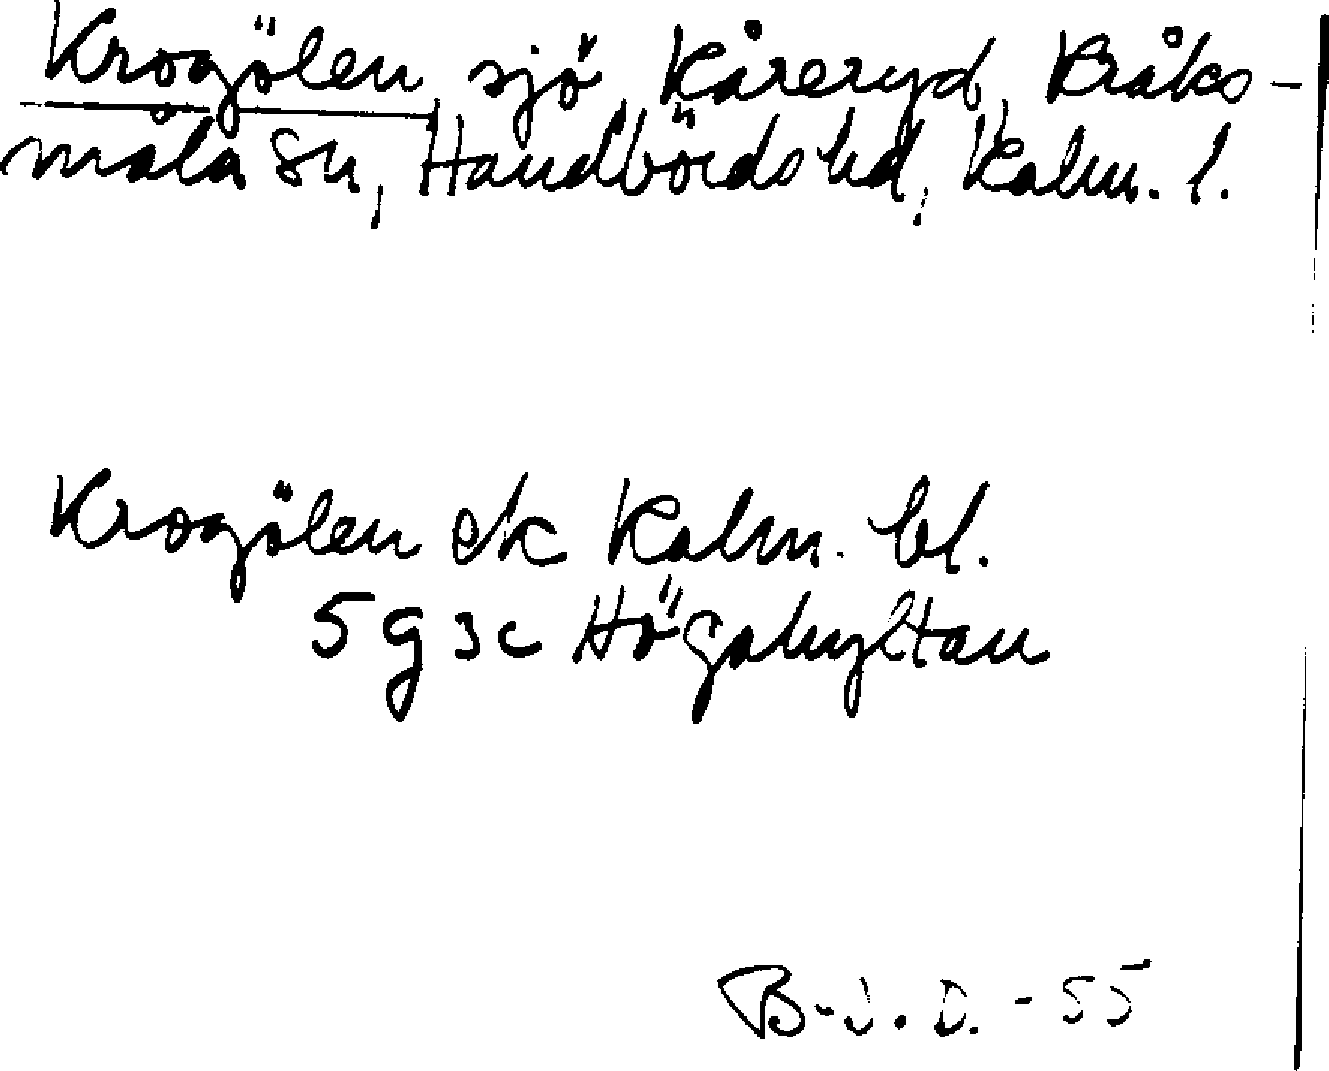 Krogölen, sjö, Kåreryd, Kråks-
måla sn, Handbörds hd, Kalm. l.
Krogölen ek Kalm. bl.
5 g 3c Högahyltan
B-J. D. - 55